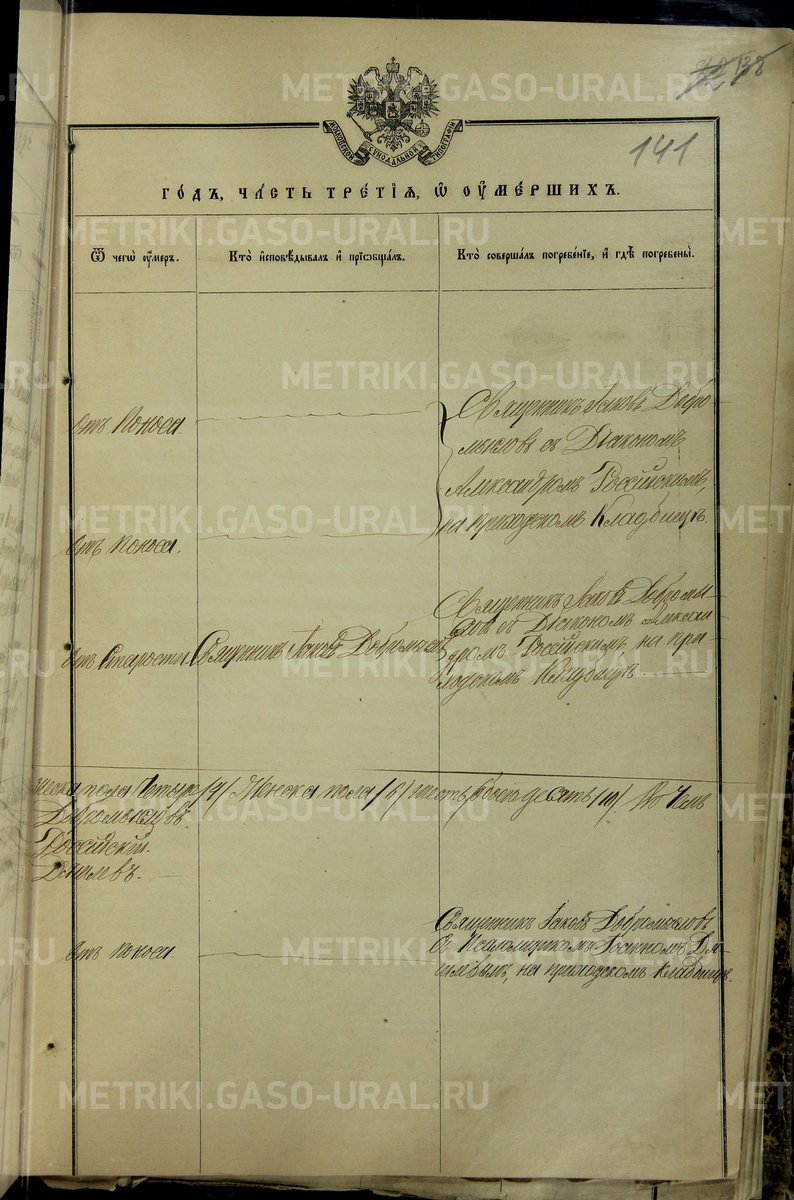 141
МОСКОВСКОЙ СѴНОДАЛЬНОЙ ТИПОГРАФІИ
ГО́ДЪ, ЧА́СТЬ ТРЕ́ТІЯ, Ѡ ОУМЕ́РШИХЪ.
Ѿ чегѡ̀ оу҆́меръ.
Кто̀ и҆сповѣ́дывалъ и҆ прїѡбща́лъ.
Кто̀ соверша́лъ погребе́нїе, и҆ гдѣ̀ погребены̀.
отъ поноса
Священникъ Іаковъ Добро
мысловъ съ Діакономъ
Александромъ Россійскимъ,
на приходскомъ кладбищѣ.
отъ поноса.
отъ старости
Священникъ Іаковъ Добромысловъ
Священникъ Іаковъ Добромы-
словъ съ Діакономъ Алексан
дромъ Россійскимъ, на при-
ходскомъ кладбищѣ.
пола четыре /4/ Женска пола /6/ шесть, обоего десять /10/. Въ чемъ
Добромысловъ.
Россійскій.
отъ поноса.
Священникъ Іаковъ Добромысловъ
съ Псаломщикомъ
на приходскомъ кладбищѣ.
METRIKI.GASO-URAL.RU